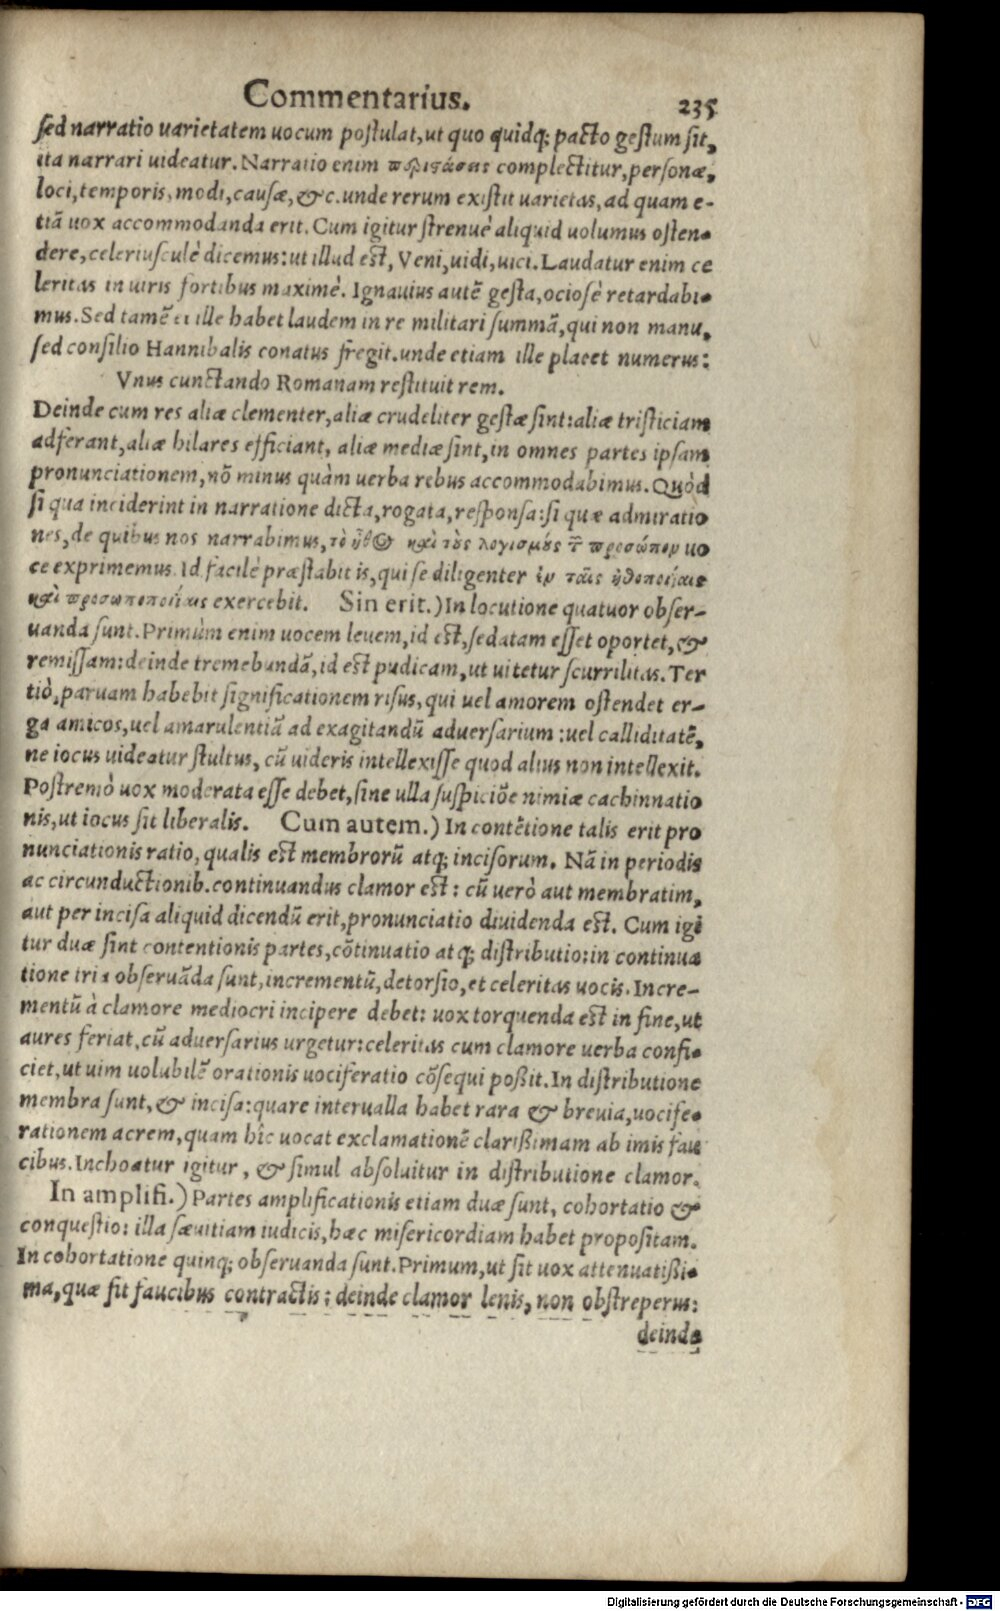 Commentarius. 235
sed narratio uarietatem uocum postulat, ut quo quidq; pacto gestum sit,
ita narrari uideatur. Narratio enim περιστάσεις complectitur, personæ,
loci, temporis, modi, causæ, &c. unde rerum existit uarietas, ad quam e-
tiã uox accommodanda erit. Cum igitur strenuè aliquid uolumus osten-
dere, celeriusculè dicemus: ut illud est, Veni, uidi, uici. Laudatur enim ce
leritas in uiris fortibus maximè. Ignauius autẽ gesta, ociosè retardabi-
mus. Sed tamẽ et ille habet laudem in re militari summã, qui non manu,
sed consilio Hannibalis conatus fregit. unde etiam ille placet numerus:
Vnus cunctando Romanam restituit rem.
Deinde cum res aliæ clementer, aliæ crudeliter gestæ sint: aliæ tristiciam
adferant, aliæ hilares efficiant, aliæ mediæ sint, in omnes partes ipsam
pronunciationem, nõ minus quàm uerba rebus accommodabimus. Quòd
si qua inciderint in narratione dicta, rogata, responsa: si quæ admiratio
nes, de quibus nos narrabimus, τὸ ἦθος καὶ τοὺς λογισμούς τ͂ προσώπων uo
ce exprimemus. Id facilè præstabit is, qui se diligenter ἐν ταῖς ἠθοποιΐαις
καὶ προσωποποιΐαις exercebit. Sin erit.) In locutione quatuor obser-
uanda sunt. Primùm enim uocem leuem, id est, sedatam esset oportet, &
remissam: deinde tremebundã, id est pudicam, ut uitetur scurrilitas. Ter
tiò, paruam habebit significationem risus, qui uel amorem ostendet er-
ga amicos, uel amarulentiã ad exagitandũ aduersarium: uel calliditatẽ,
ne iocus uideatur stultus, cũ uideris intellexisse quod alius non intellexit.
Postremò uox moderata esse debet, sine ulla suspiciõe nimiæ cachinnatio
nis, ut iocus sit liberalis. Cum autem.) In contẽtione talis erit pro
nunciationis ratio, qualis est membrorũ atq; incisorum. Nã in periodis
ac circunductionib. continuandus clamor est: cũ uerò aut membratim,
aut per incisa aliquid dicendũ erit, pronunciatio diuidenda est. Cum igi
tur duæ sint contentionis partes, cõtinuatio atq; distributio: in continua
tione tria obseruãda sunt, incrementũ, detorsio, et celeritas uocis. Incre-
mentũ à clamore mediocri incipere debet: uox torquenda est in fine, ut
aures feriat, cũ aduersarius urgetur: celeritas cum clamore uerba confi-
ciet, ut uim uolubilẽ orationis uociferatio cõsequi poßit. In distributione
membra sunt, & incisa: quare interualla habet rara & breuia, uocife-
rationem acrem, quam hîc uocat exclamationẽ clarißimam ab imis fau
cibus. Inchoatur igitur, & simul absoluitur in distributione clamor.
In amplifi.) Partes amplificationis etiam duæ sunt, cohortatio &
conquestio: illa sæuitiam iudicis, hæc misericordiam habet propositam.
In cohortatione quinq; obseruanda sunt. Primum, ut sit uox attenuatißi-
ma, quæ fit faucibus contractis: deinde clamor lenis, non obstreperus:
deinde
Digitalisierung gefördert durch die Deutsche Forschungsgemeinschaft - DFG